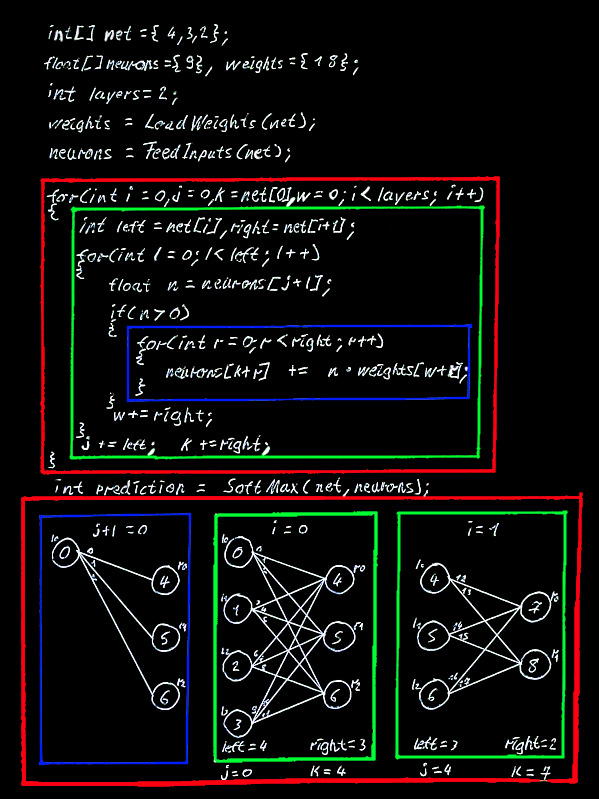 int[] net = { 4,3,2};
float[] neurons = {9}, weights = {18};
int layers = 2;
weights = LoadWeights(net);
neurons = FeedInputs(net);
for(int i = 0,j = 0,k = net[0],w = 0; i < layers; i++)
{
int left = net[i], right = net[i+1];
for(int l = 0; l < left; l++)
{
float n = neurons[j+l];
if(n > 0)
{
for(int r = 0; r < right; r++)
{
neurons[k+r] += n * weights[w+r];
}
}
w += right;
}
j += left; k += right;
}
int prediction = SoftMax(net, neurons);
j+1 = 0
l0 0 0 1 2
4 r0
5 r1
6 r2
i = 0
l0 0
l1 1 3 4 5
l2 2 6
l3 3 9 11
4 r0
5 r1
6 r2
left = 4 right = 3
j = 0 k = 4
i = 1
4 12 13
5 14 15
l2 6 16 17
7 r0
8 r1
left = 3 right = 2
j = 4 k = 7